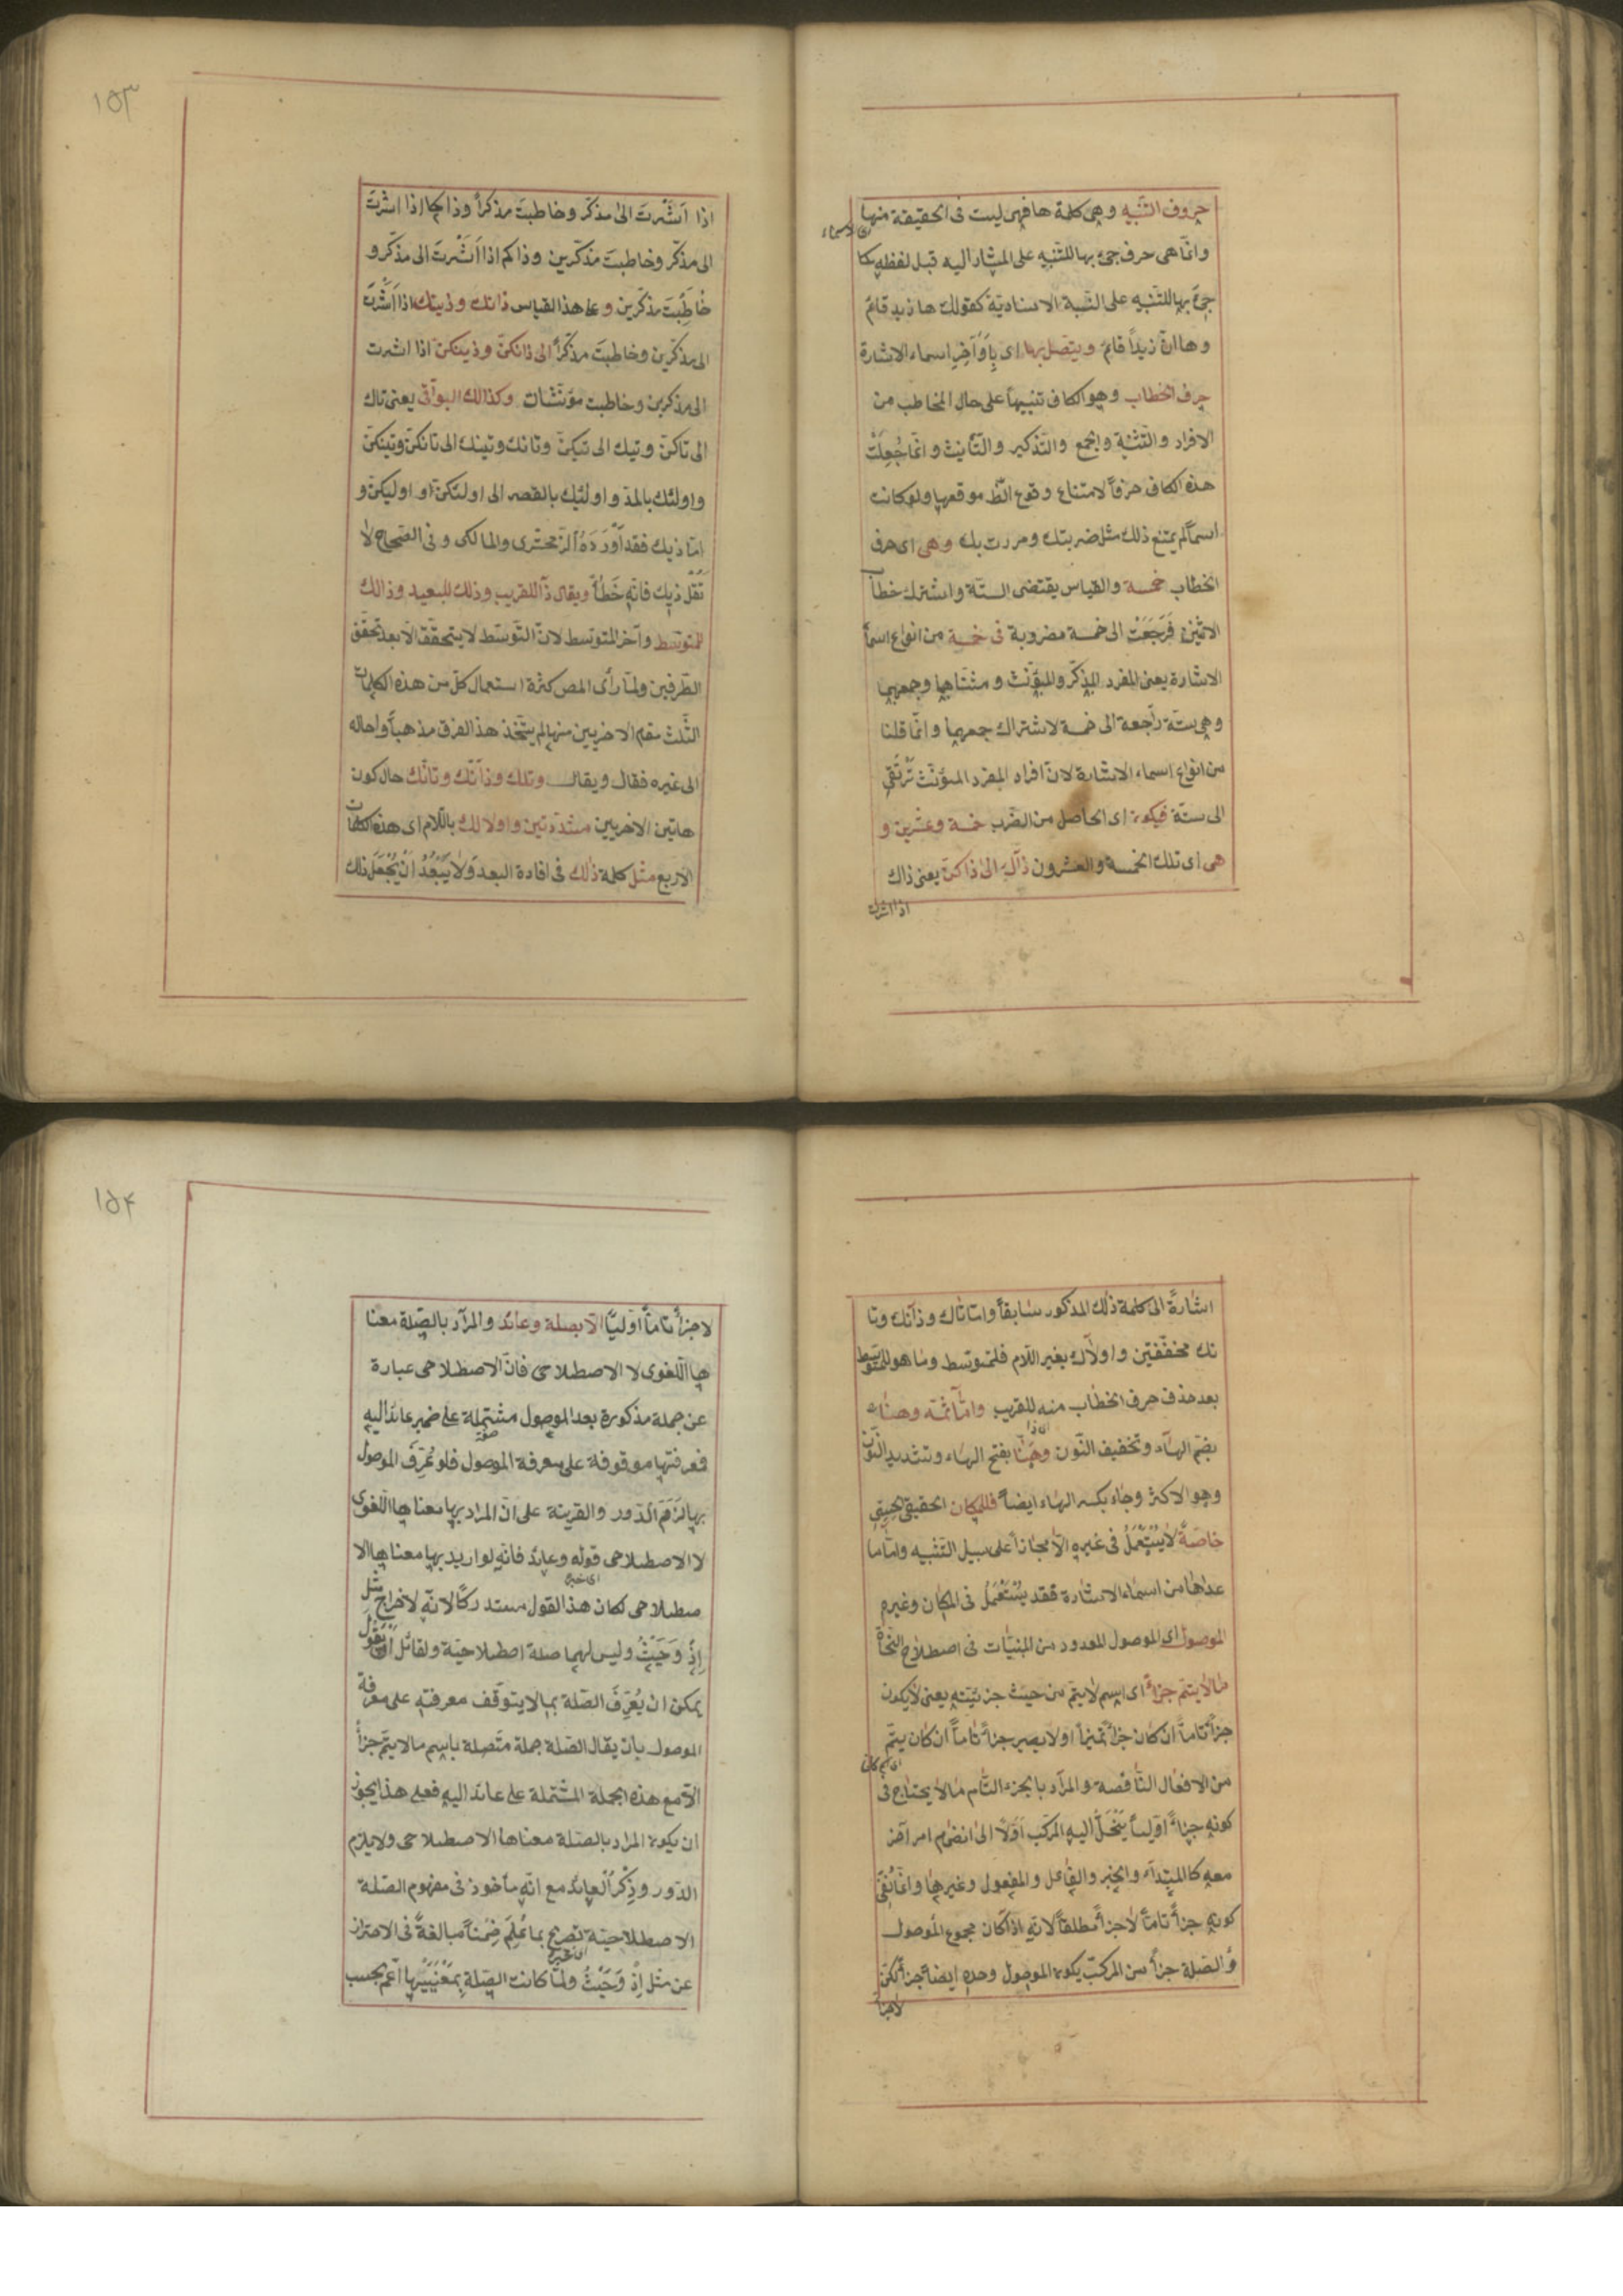 حروف التنبيه وهى كلمة ها فهى ليست فى الحقيقة منها
وانما هى حرف جئ بها للتنبيه على المشار اليه قبل لفظه كما
جئ بها للتنبيه على النسبة الاسنادية كقولك ها زيد قائم
وها ان زيداً قائم ويتصل بها اى بِأَوَاخِرِ اسماء الاشارة
حرف الخطاب وهو الكاف تنبيهاً على حال المخاطب من
الافراد والتثنية والجمع والتذكير والتأنيث وانما جُعِلَتْ
هذه الكاف حرفاً لامتناع وقوع الظ موقعها ولو كانت
اسماً لم يمتنع ذلك مثل ضربتك ومررت بك وهى اى حرف
الخطاب خمسة والقياس يقتضى الستة واشترك خطاب
الاثنين فَرَجَعَتْ الى خمسة مضروبة فى خمسة من انواع اسماء
الاشارة يعنى المفرد المذكّر والمؤنث ومثناهما وجمعهما
وهى ستة راجعة الى خمسة لاشتراك جمعهما وانما قلنا
من انواع اسماء الاشارة لان افراد المفرد المؤنث تَرْتَقِى
الى ستة فيكون اى الحاصل من الضرب خمسة وعشرين و
هى اى تلك الخمسة والعشرون ذاك الى ذاكن يعنى ذاك
اذا اشرت
١٥٣
اذا اَشَرتَ الى مذكّر وخاطبتَ مذكراً وذاكما اذا اشرتَ
الى مذكّر وخاطبتَ مذكّرين وذاكم اذا اَشَرْتَ الى مذكّر و
خَاطَبْتَ مذكّرين وعلى هذا القياس ذانك وذينك اذا اَشَرْتَ
الى مذكّرين وخاطبتَ مذكّراً الى ذانكنّ وذينكنّ اذا اشرت
الى مذكرين وخاطبت مؤنثات وكذالك البواقى يعنى تاك
الى تاكنّ وتيك الى تيكنّ وتانك وتينك الى تانكنّ وتينكنّ
واولئك بالمدّ واوليك بالقصر الى اولئكنّ او اوليكنّ و
امّا ذيك فقد اَوْرَدَهُ الزمخشرى والمالكى وفى الصحاح لا
تَقُلْ ذيك فانه خَطَأٌ ويقال ذا للقريب وذلك للبعيد وذالك
للمتوسط وآخر المتوسط لانّ التوسّط لا يتحقّق الا بعد تحقق
الطرفين ولمّا رأى المص كثرة استعمال كلّ من هذه الكلمات
الثلث مقام الاخريين منها لم يتّخذ هذا الفرق مذهباً واحاله
الى غيره فقال ويقال وتلك وذانّك وتانّك حال كون
هاتين الاخريين مشدّدتين واولالك باللام اى هذه الكلمات
الاربع مثل كلمة ذلك فى افادة البعد وَلَا يَبْعُدُ اَنْ يُجْعَلَ ذلك
اشارةً الى كلمة ذلك المذكور سابقاً وامّا تاك وذانك وتا
نك مخفّفتين واولاك بغير اللام فلمتوسط وما هو للمتوسط
بعد حذف حرف الخطاب منه للقريب وامّا ثمّه وهنا
بضم الهاء وتخفيف النون وهَنّا بفتح الهاء وتشديد النون
وهو الاكثر وجاء بكسر الهاء ايضاً فللمكان الحقيقى الحسّى
خاصّة لا يُسْتَعْمَلُ فى غيره الا مجازاً على سبيل التشبيه وامّا ما
عداها من اسماء الاشارة فقد يُسْتَعْمَلُ فى المكان وغيره
الموصول اى الموصول المعدود من المبنيّات فى اصطلاح النحاة
ما لا يتمّ جزاءً اى اسم لا يتم من حيث جزئيّته يعنى لا يكون
جزأً تامّاً ان كان جزأً تميزاً او لا يصير جزأً تامّاً ان كان يتمّ
من الافعال الناقصة والمراد بالجزء التام ما لا يحتاج فى
كونه جزاءً اوّليّاً يَنْحَلُّ اليه المركب اَوّلاً الى انضمام امر آخر
معه كالمبتدأ والخبر والفاعل والمفعول وغيرها وانما نُفِىَ
كونه جزأً تامّاً لا جزأً مطلقاً لانه اذا كان مجموع الموصول
والصلة جزأً من المركب يكون الموصول وحده ايضاً جزأً لكن
لا جزأ
١٥٤
لا جزأً تامّاً اوّليّاً الا بصلة وعائد والمراد بالصّلة معنا
ها اللغوى لا الاصطلاحى فانّ الاصطلاحى عبارة
عن جملة مذكورة بعد الموصول مشتملة على ضمير عائد اليه
فمعرفتها موقوفة على معرفة الموصول فلو عُرِّفَ الموصول
بها لَزِمَ الدّور والقرينة على انّ المراد بها معناها اللغوى
لا الاصطلاحى قوله وعائد فانه لو اريد بها معناها الا
صطلاحى لكان هذا القول مستدركاً لانّه لاخراج مثل
اِذْ وَحَيْثُ وليس لهما صلة اصطلاحيّة ولقائل ان يقول
يمكن ان يُعَرَّفَ الصّلة بما لا يتوقّف معرفته على معرفة
الموصول بان يقال الصّلة جملة متّصلة باسم ما لا يتمّ جزأً
الا مع هذه الجملة المشتملة على عائد اليه فعلى هذا يجوز
ان يكون المراد بالصّلة معناها الاصطلاحى ولا يلزم
الدّور وذِكْرُ العائد مع انّه مأخوذ فى مفهوم الصّلة
الاصطلاحيّة تصريح بما عُلِمَ ضِمْناً مبالغةً فى الاحتراز
عن مثل اِذْ وَحَيْثُ ولمّا كانت الصّلة بِمَعْنَيَيْها اَعَمّ بحسب